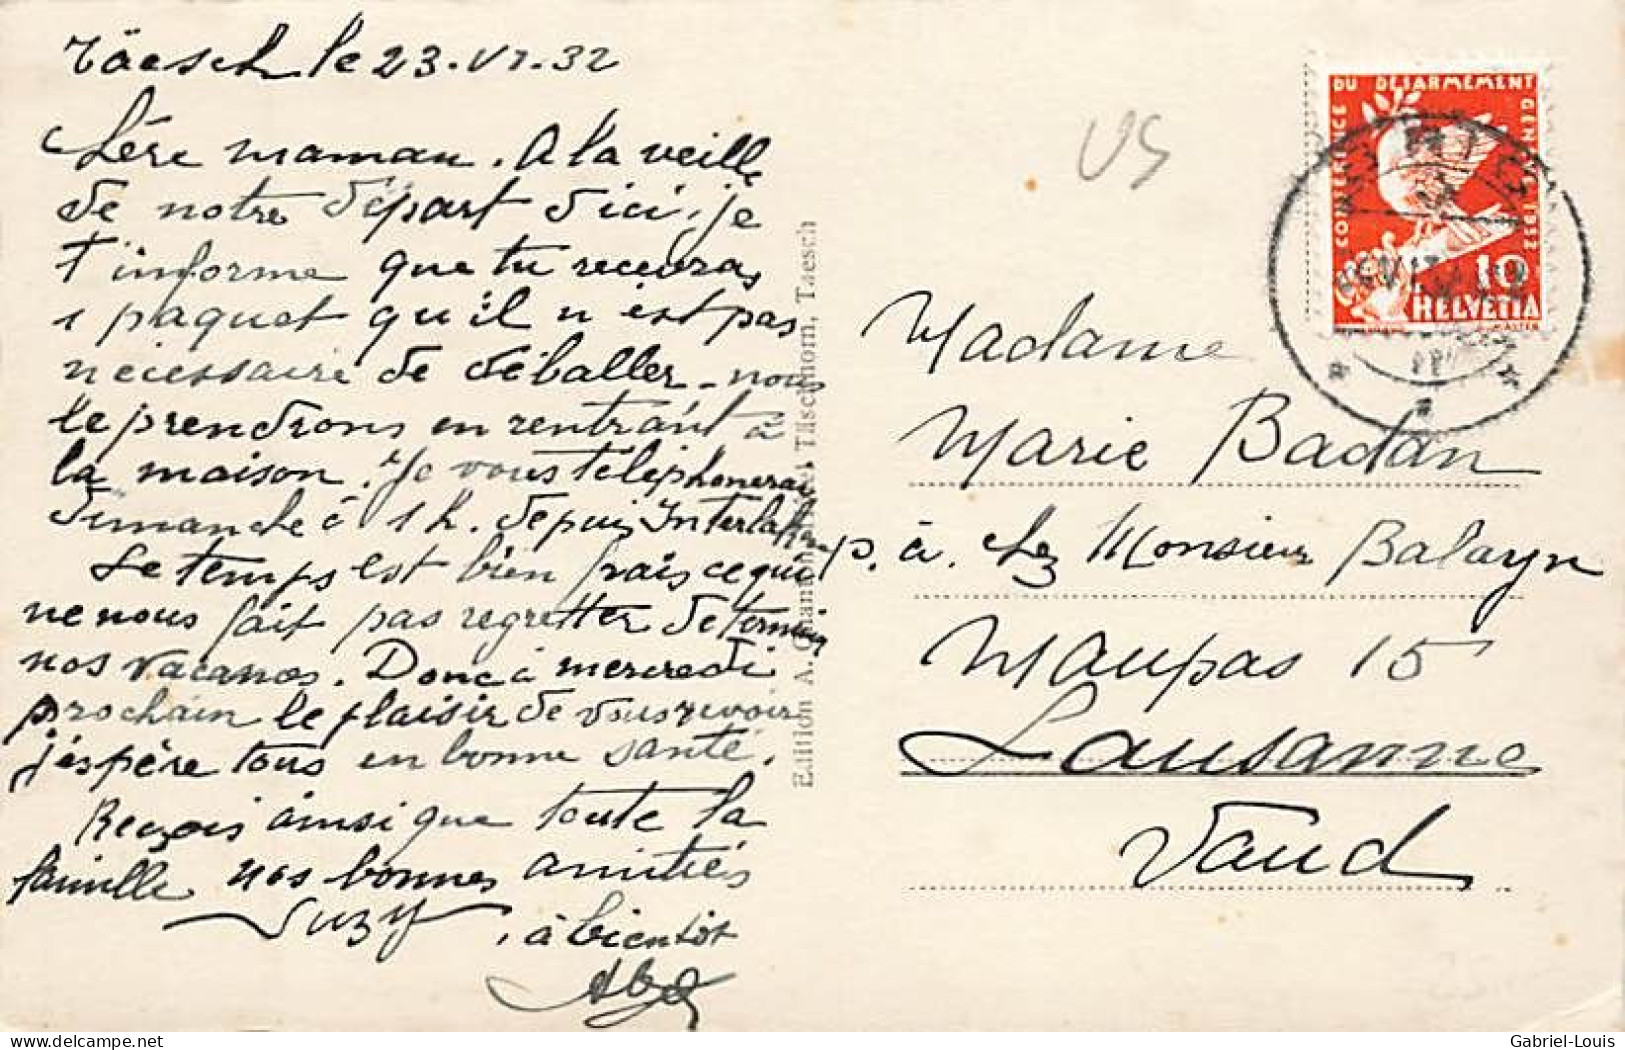 Täesch le 23.VI.32
Chère maman. A la veille
de notre départ d'ici, je
t'informe que tu recevras
1 paquet qu'il n'est pas
nécessaire de déballer - nous
le prendrons en rentrant à
la maison. Je vous téléphonerai
dimanche à 1 h. depuis Interlaken
Le temps est bien frais ce qui
ne nous fait pas regretter de terminer
nos vacances. Donc à mercredi
prochain le plaisir de vous revoir
j'espère tous en bonne santé.
Reçois ainsi que toute la
famille nos bonnes amitiés
Suzy, à bientôt
Edition A. Täschhorn, Taesch
US
CONFERENCE DU DESARMEMENT GENEVE 1932
10
HELVETIA
Madame
Marie Badan
p. à. chez Monsieur Balayn
Maupas 15
Lausanne
Vaud
Gabriel-Louis